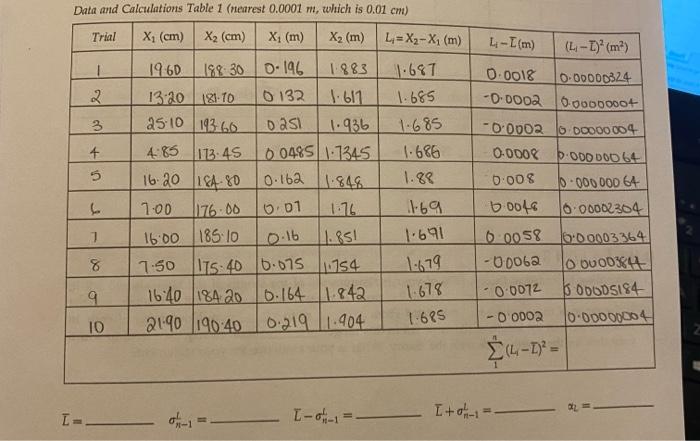 Data and Calculations Table 1 (nearest 0.0001 m, which is 0.01 cm)
Trial X₁ (cm) X₂ (cm) X₁ (m) X₂ (m) Lᵢ=X₂−X₁ (m) Lᵢ−L̄(m) (Lᵢ−L̄)² (m²)
1 19.60 188.30 0.196 1.883 1.687 0.0018 0.00000324
2 13.20 181.70 0.132 1.617 1.685 -0.0002 0.00000004
3 25.10 193.60 0.251 1.936 1.685 -0.0002 0.00000004
4 4.85 173.45 0.0485 1.7345 1.686 0.0008 0.00000064
5 16.20 184.80 0.162 1.848 1.88 0.008 0.00000064
6 7.00 176.00 0.07 1.76 1.69 0.0048 0.00002304
7 16.00 185.10 0.16 1.851 1.691 0.0058 0.00003364
8 7.50 175.40 0.075 1.754 1.679 -0.0062 0.00003844
9 16.40 184.20 0.164 1.842 1.678 -0.0072 0.00005184
10 21.90 190.40 0.219 1.904 1.685 -0.0002 0.00000004
n
∑(Lᵢ−L̄)² =
1
L̄ = σᴸₙ₋₁ = L̄−σᴸₙ₋₁ = L̄+σᴸₙ₋₁ = α_L =